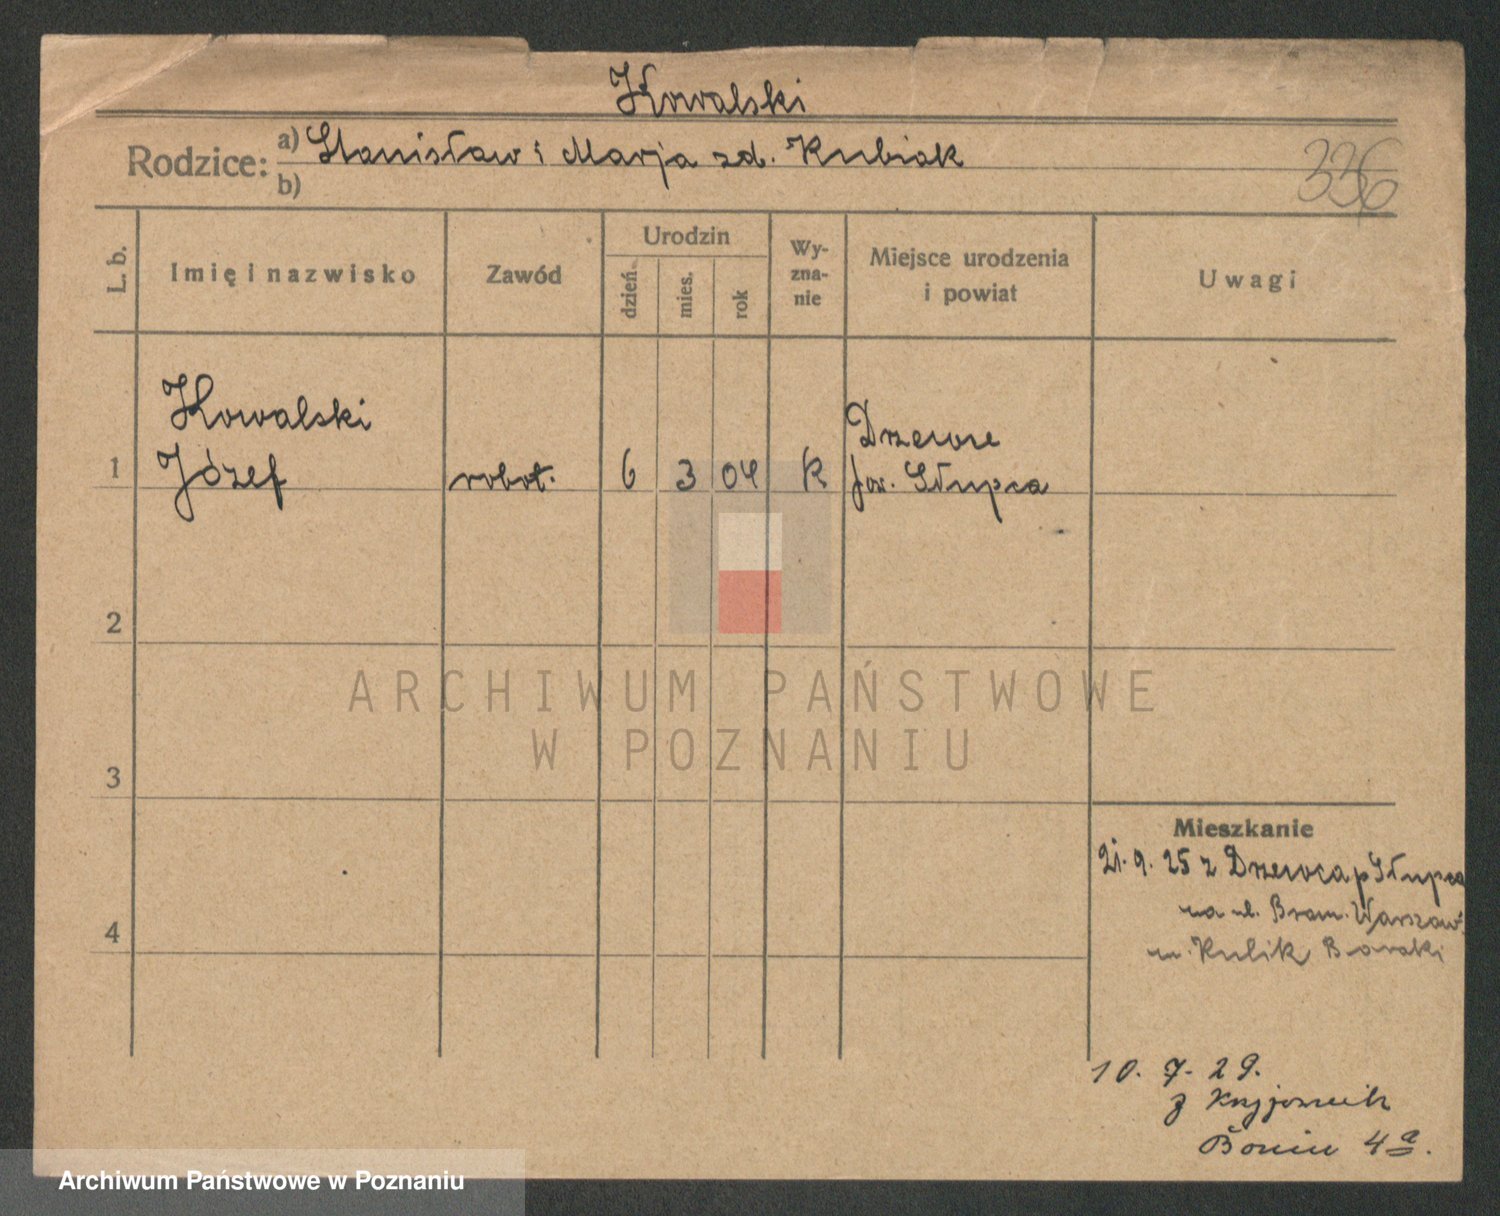 Kowalski
Rodzice: a) Stanisław i Marja zd. Kubiak
b)
336
L. b.
Imię i nazwisko
Zawód
Urodzin
dzień
mies.
rok
Wy-
zna-
nie
Miejsce urodzenia
i powiat
Uwagi
Kowalski
Józef
1
robot.
6 3 04
K
Drzewce
pow. Słupca
2
3
4
Mieszkanie
21. 9. 25 z Drzewca p Słupca
na ul. Bram. Warszaw.
u. Kulik Baraki
10. 7. 29.
z
Bonin 4a.
ARCHIWUM PAŃSTWOWE
W POZNANIU
Archiwum Państwowe w Poznaniu